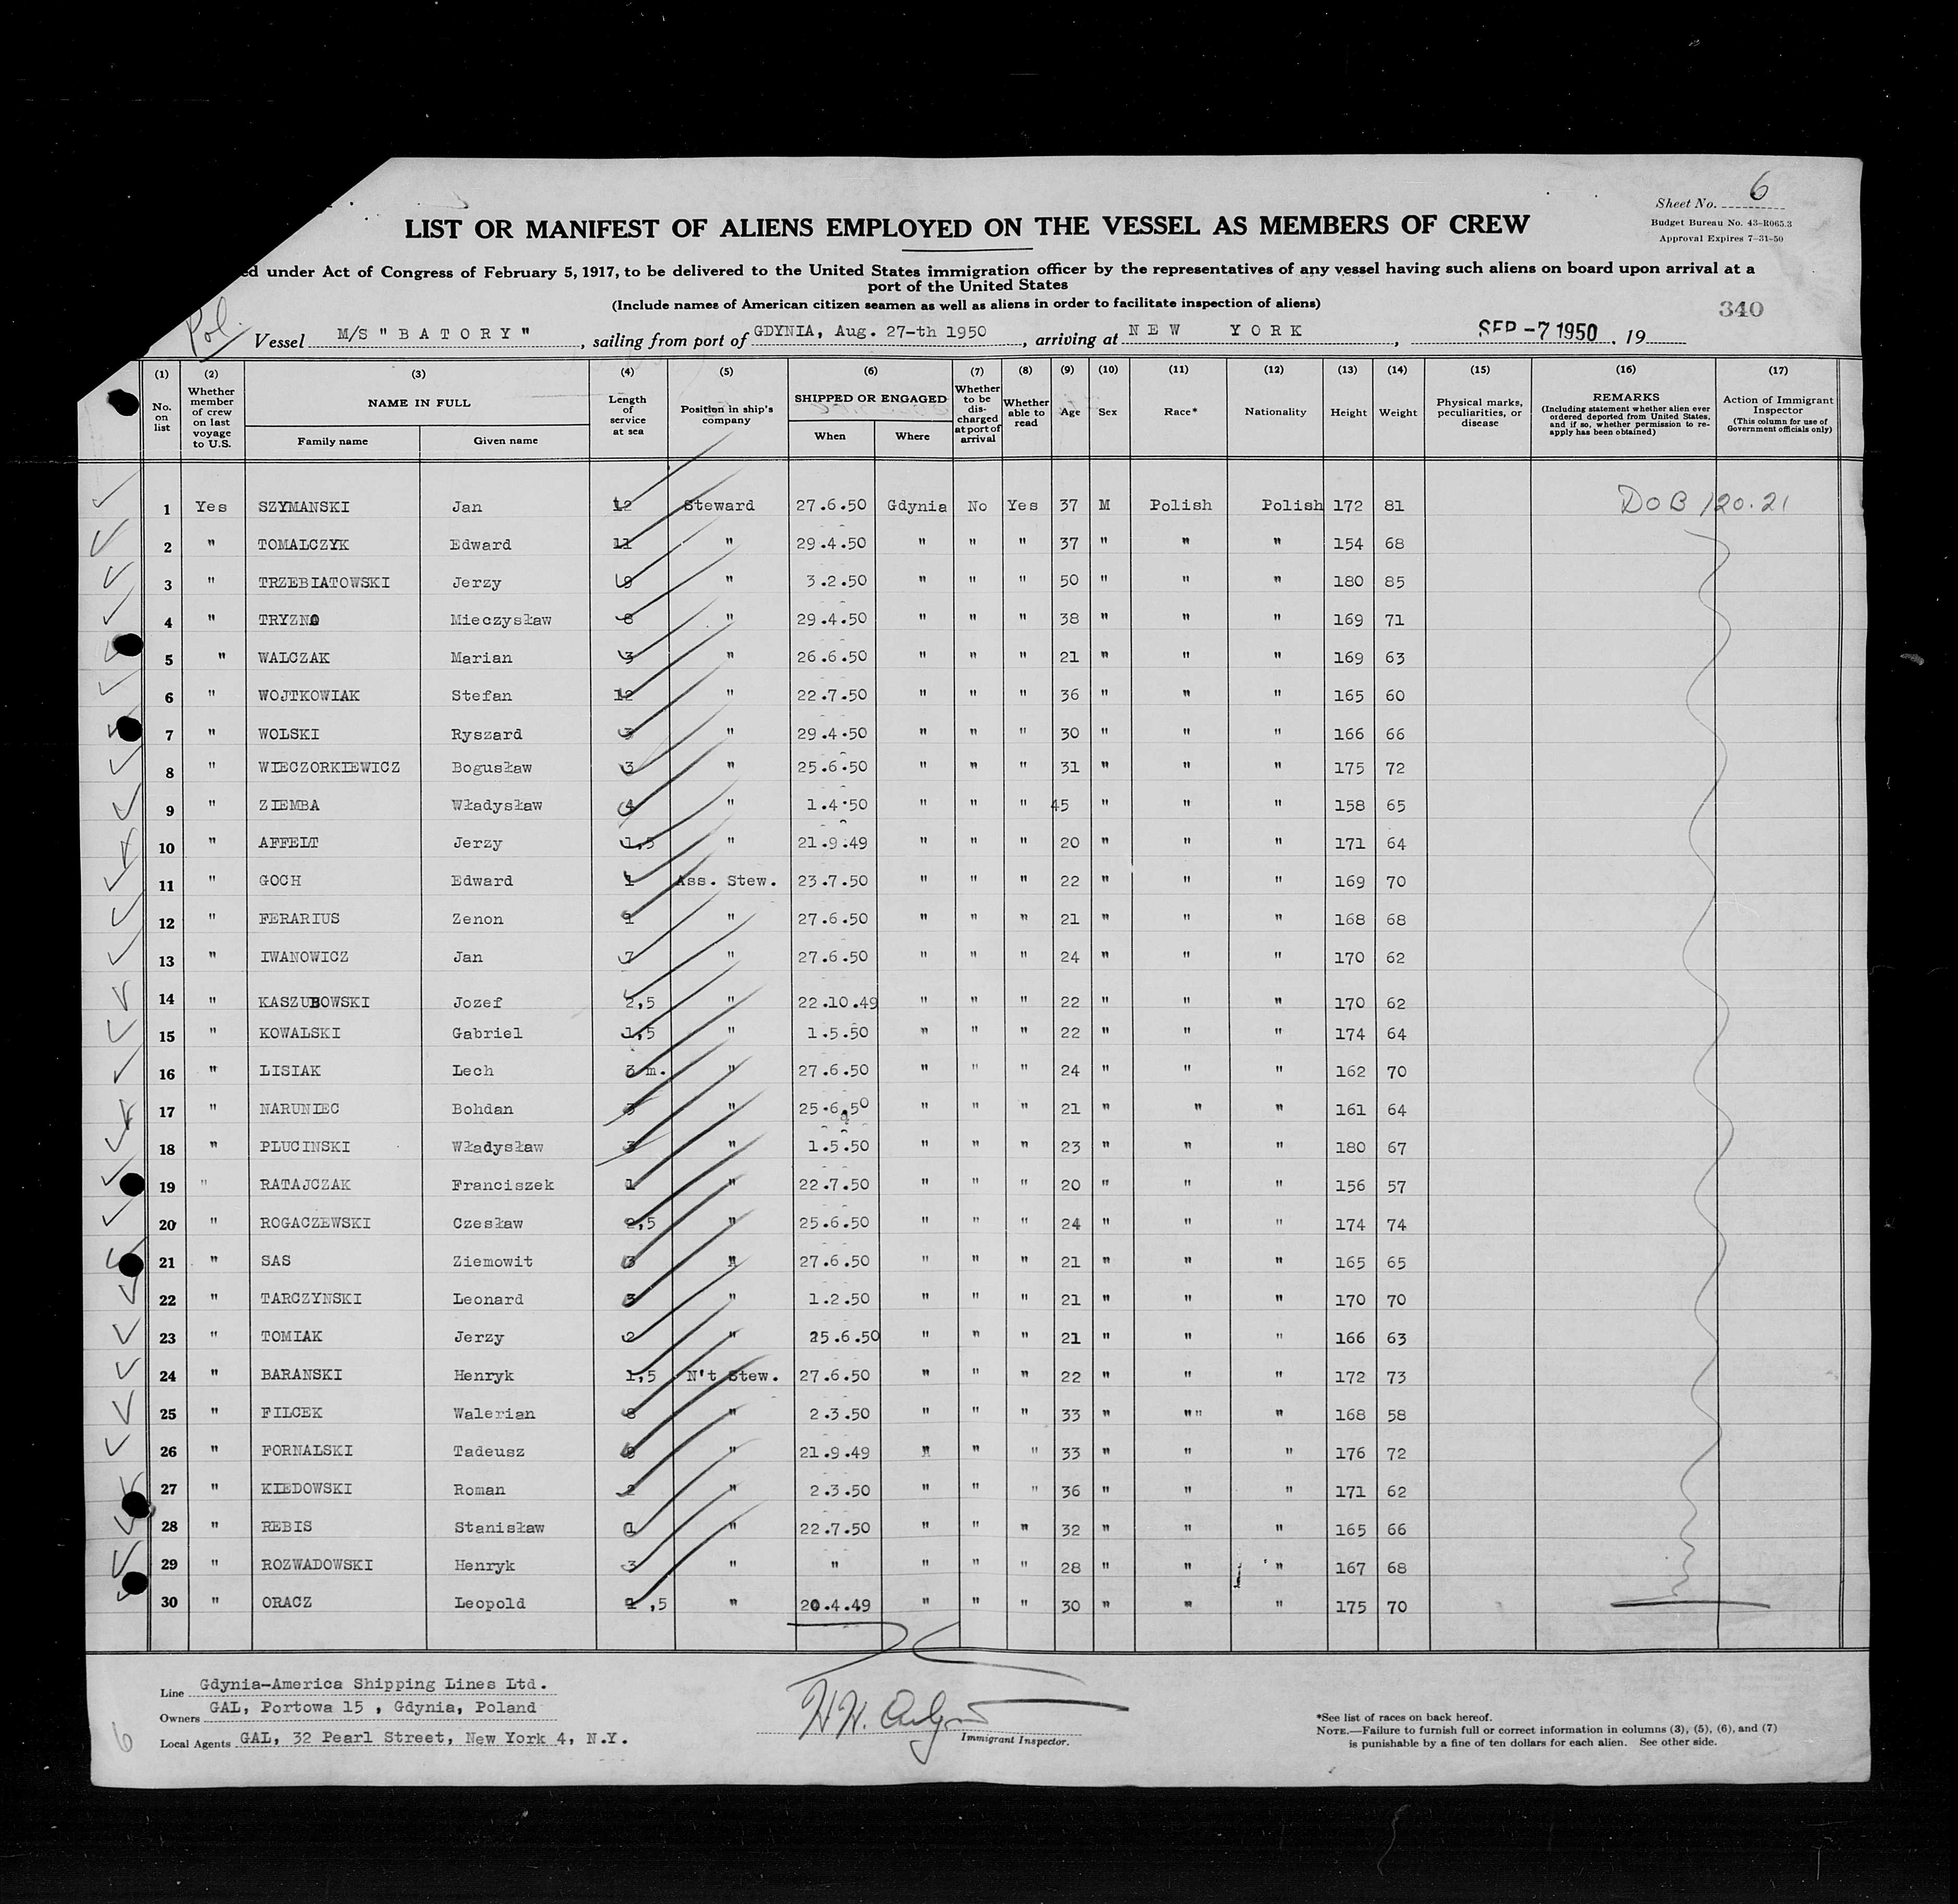 6
Sheet No.
Budget Bureau No. 43-R065.3
Approval Expires 7-31-50
LIST OR MANIFEST OF ALIENS EMPLOYED ON THE VESSEL AS MEMBERS OF CREW
ed under Act of Congress of February 5, 1917, to be delivered to the United States immigration officer by the representatives of any vessel having such aliens on board upon arrival at a
port of the United States
(Include names of American citizen seamen as well as aliens in order to facilitate inspection of aliens)
340
Pol.
Vessel M/S " B A T O R Y " , sailing from port of GDYNIA, Aug. 27-th 1950 , arriving at N E W Y O R K , SEP -7 1950 , 19
(1) (2) (3) (4) (5) (6) (7) (8) (9) (10) (11) (12) (13) (14) (15) (16) (17)
No. on list Whether member of crew on last voyage to U.S. NAME IN FULL Family name Given name Length of service at sea Position in ship's company SHIPPED OR ENGAGED When Where Whether to be discharged at port of arrival Whether able to read Age Sex Race* Nationality Height Weight Physical marks, peculiarities, or disease REMARKS (Including statement whether alien ever ordered deported from United States, and if so, whether permission to re-apply has been obtained) Action of Immigrant Inspector (This column for use of Government officials only)
1 Yes SZYMANSKI Jan 12 Steward 27.6.50 Gdynia No Yes 37 M Polish Polish 172 81 DOB 120.21
2 " TOMALCZYK Edward 11 " 29.4.50 " " " 37 " " " 154 68
3 " TRZEBIATOWSKI Jerzy 9 " 3.2.50 " " " 50 " " " 180 85
4 " TRYZNO Mieczysław 8 " 29.4.50 " " " 38 " " " 169 71
5 " WALCZAK Marian 3 " 26.6.50 " " " 21 " " " 169 63
6 " WOJTKOWIAK Stefan 12 " 22.7.50 " " " 36 " " " 165 60
7 " WOLSKI Ryszard 3 " 29.4.50 " " " 30 " " " 166 66
8 " WIECZORKIEWICZ Bogusław 3 " 25.6.50 " " " 31 " " " 175 72
9 " ZIEMBA Władysław 4 " 1.4.50 " " " 45 " " " 158 65
10 " AFFELT Jerzy 1,5 " 21.9.49 " " " 20 " " " 171 64
11 " GOCH Edward 1 Ass. Stew. 23.7.50 " " " 22 " " " 169 70
12 " FERARIUS Zenon 1 " 27.6.50 " " " 21 " " " 168 68
13 " IWANOWICZ Jan 7 " 27.6.50 " " " 24 " " " 170 62
14 " KASZUBOWSKI Jozef 2,5 " 22.10.49 " " " 22 " " " 170 62
15 " KOWALSKI Gabriel 1,5 " 1.5.50 " " " 22 " " " 174 64
16 " LISIAK Lech 3 m. " 27.6.50 " " " 24 " " " 162 70
17 " NARUNIEC Bohdan 3 " 25.6.50 " " " 21 " " " 161 64
18 " PLUCINSKI Władysław 3 " 1.5.50 " " " 23 " " " 180 67
19 " RATAJCZAK Franciszek 1 " 22.7.50 " " " 20 " " " 156 57
20 " ROGACZEWSKI Czesław 2,5 " 25.6.50 " " " 24 " " " 174 74
21 " SAS Ziemowit 3 " 27.6.50 " " " 21 " " " 165 65
22 " TARCZYNSKI Leonard 3 " 1.2.50 " " " 21 " " " 170 70
23 " TOMIAK Jerzy 2 " 25.6.50 " " " 21 " " " 166 63
24 " BARANSKI Henryk 1,5 N't Stew. 27.6.50 " " " 22 " " " 172 73
25 " FILCEK Walerian 8 " 2.3.50 " " " 33 " "" " 168 58
26 " FORNALSKI Tadeusz " 21.9.49 " " " 33 " " " 176 72
27 " KIEDOWSKI Roman 2 " 2.3.50 " " " 36 " " " 171 62
28 " REBIS Stanisław 1 " 22.7.50 " " " 32 " " " 165 66
29 " ROZWADOWSKI Henryk 3 " " " " " 28 " " " 167 68
30 " ORACZ Leopold ,5 " 20.4.49 " " " 30 " " " 175 70
Line Gdynia-America Shipping Lines Ltd.
Owners GAL, Portowa 15 , Gdynia, Poland
Local Agents GAL, 32 Pearl Street, New York 4, N.Y.
6
Immigrant Inspector.
*See list of races on back hereof.
NOTE.—Failure to furnish full or correct information in columns (3), (5), (6), and (7)
is punishable by a fine of ten dollars for each alien. See other side.